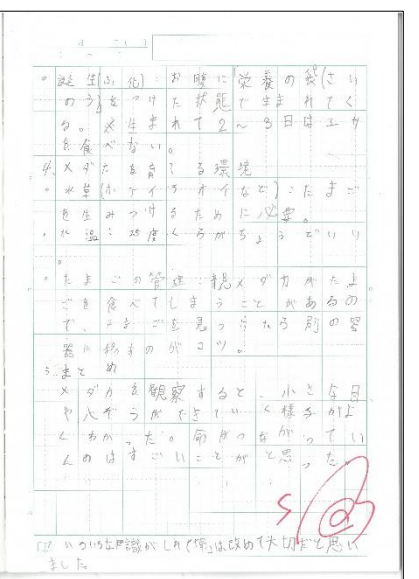 ・誕生(ふ化):お腹に「栄養の袋(さい
のう)をつけた状態で生まれてく
る。※生まれて2〜3日はエサ
を食べない。
4. メダカを育てる環境
・水草(ホテイアオイなど):たまご
を生みつけるために必要。
・水温:25度くらいがちょうどいい
。
・たまごの管理:親メダカがたま
ごを食べてしまうことがあるの
で、たまごを見つけたら別の容
器に移すのがコツ。
5. まとめ
メダカを観察すると、小さな目
や心ぞうができていく様子がよ
くわかった。命がつながってい
くのはすごいことだと思った。
は改めて大切だと思い
ました。